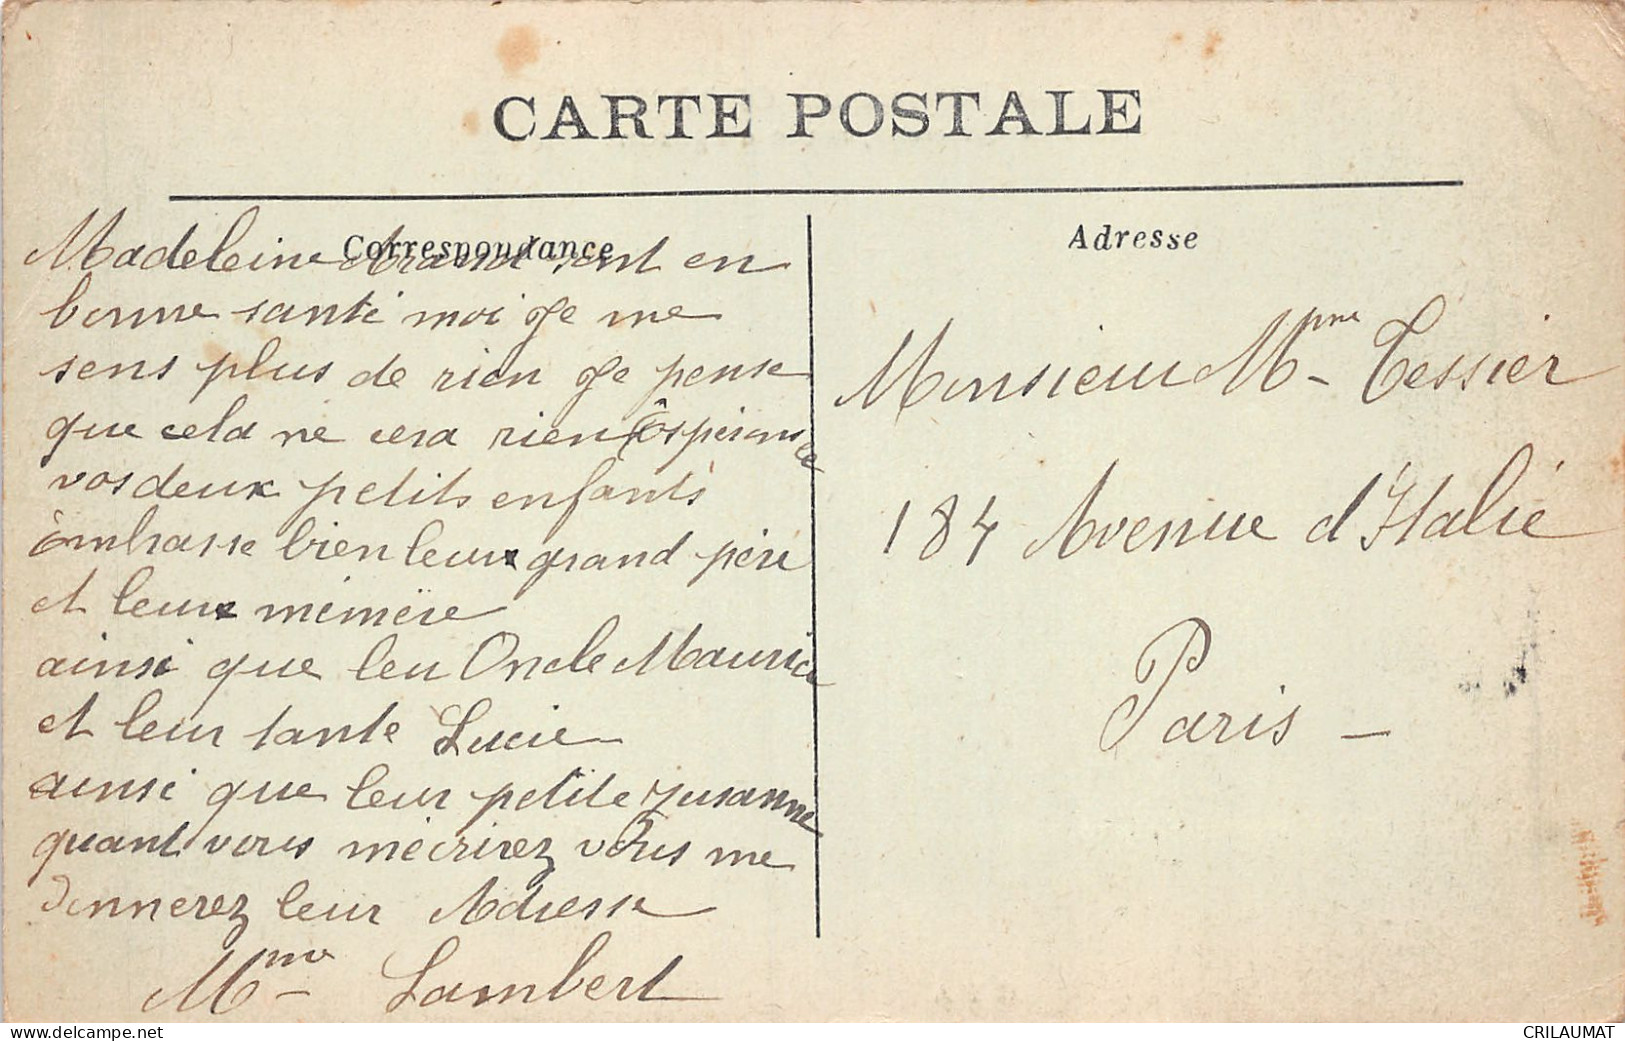 CARTE POSTALE
Correspondance
Madeleine sont en
bonne santé moi Je me
sens plus de rien Je pense
que cela ne cera rien Espérons le
vos deux petits enfants
embrasse bien leux grand père
et leux mémère
ainsi que leu Oncle Maurice
et leur tante Lucie
ainsi que leur petite zusanne
quant vous mécrirez vous me
donnerez leur Adresse
Mme Lambert
Adresse
Monsieur Mme Tessier
184 Avenue d'Italie
Paris -
www.delcampe.net
CRILAUMAT